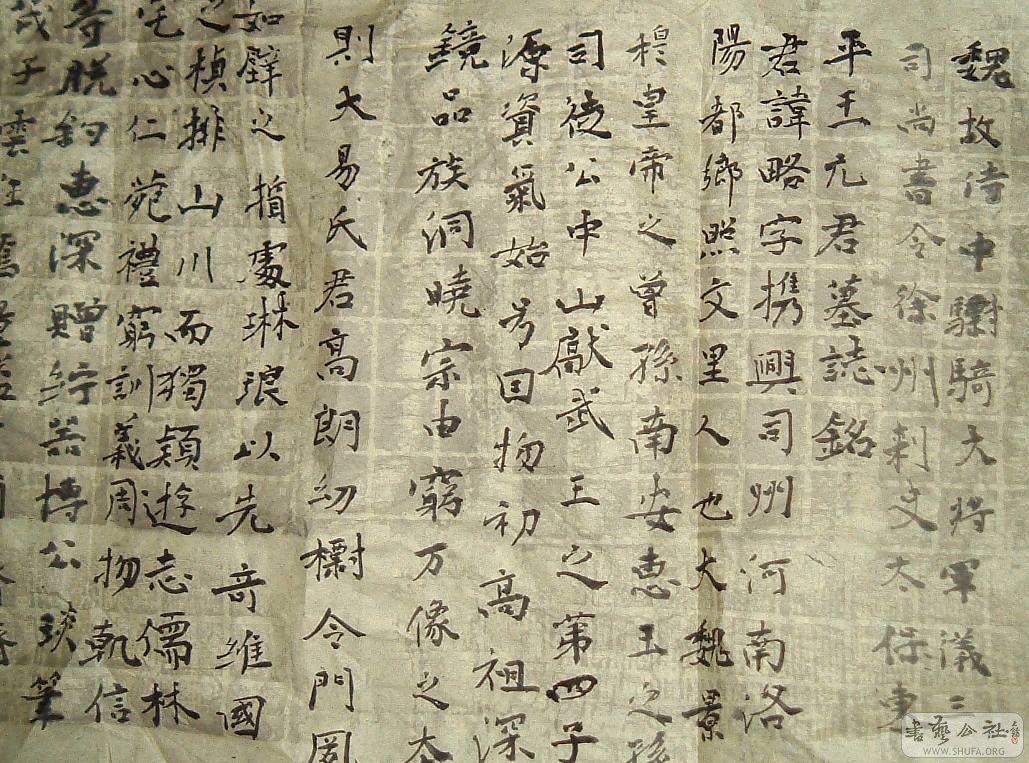 魏故侍中驃騎大将軍儀
司尚書令徐州刺史太保東
平王元君墓誌銘
君諱略字携興司州河南洛
陽都鄉照文里人也大魏景
穆皇帝之曾孫南安惠王之孫
司徒公中山獻武王之第四子
源資氣始号因物初高祖深
鏡品族洞曉宗由窮万像之本
則大易氏君高朗幼樹令門
如璧之指處琳琅以先奇維國
之楨排山川而獨穎遊志儒林
宅心仁苑禮窮訓義周物軌信
等脱鈞惠深贈紵苦博公談筆
茂子雲
書藝公社
WWW.SHUFA.ORG